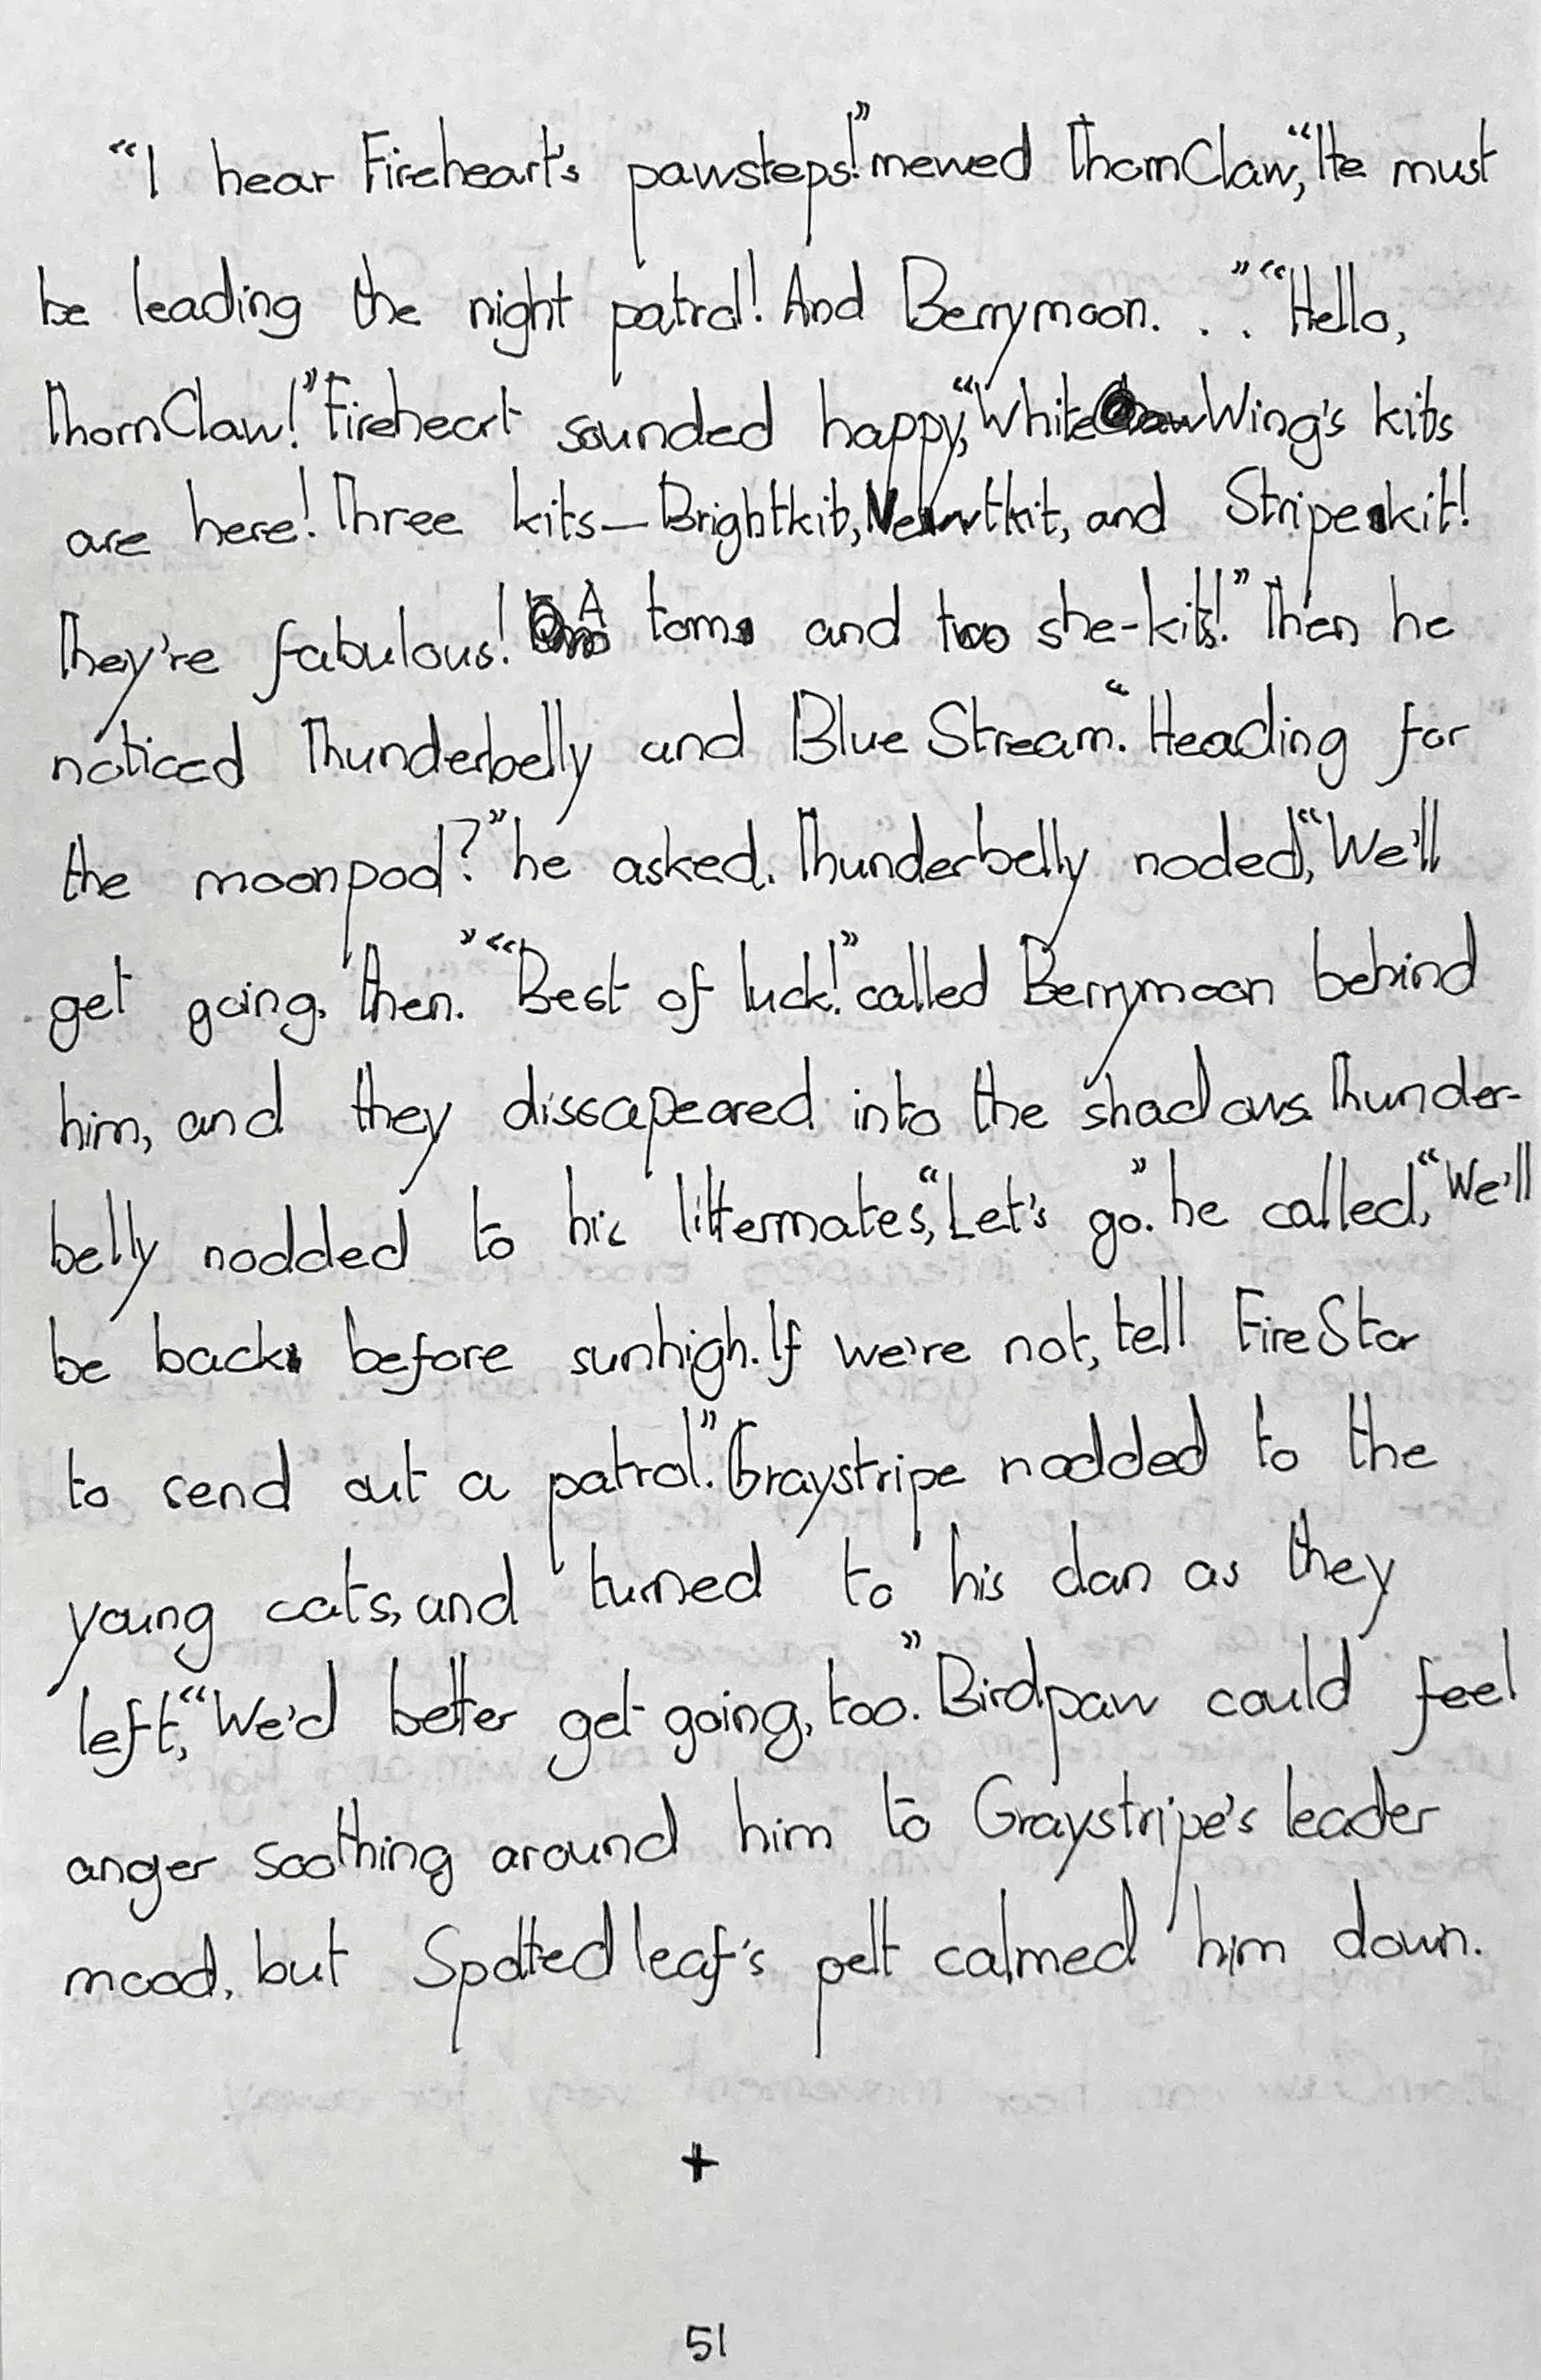 “I hear Fireheart's pawsteps!” mewed ThornClaw, “He must
be leading the night patrol! And Berrymoon. . .” “Hello,
ThornClaw!” Fireheart sounded happy, “White Wing's kits
are here! Three kits—Brightkit, Newtkit, and Stripekit!
They're fabulous! A tom and two she-kits!” Then he
noticed Thunderbelly and Blue Stream. “Heading for
the moonpool?” he asked. Thunderbelly noded, “We'll
get going, then.” “Best of luck!” called Berrymoon behind
him, and they dissapeared into the shadows. Thunder-
belly nodded to his littermates, “Let's go.” he called, “We'll
be back before sunhigh. If we're not, tell FireStar
to send out a patrol.” Graystripe nodded to the
young cats, and turned to his clan as they
left, “We'd better get going, too.” Birdpaw could feel
anger soothing around him to Graystripe's leader
mood, but Spottedleaf's pelt calmed him down.
+
51